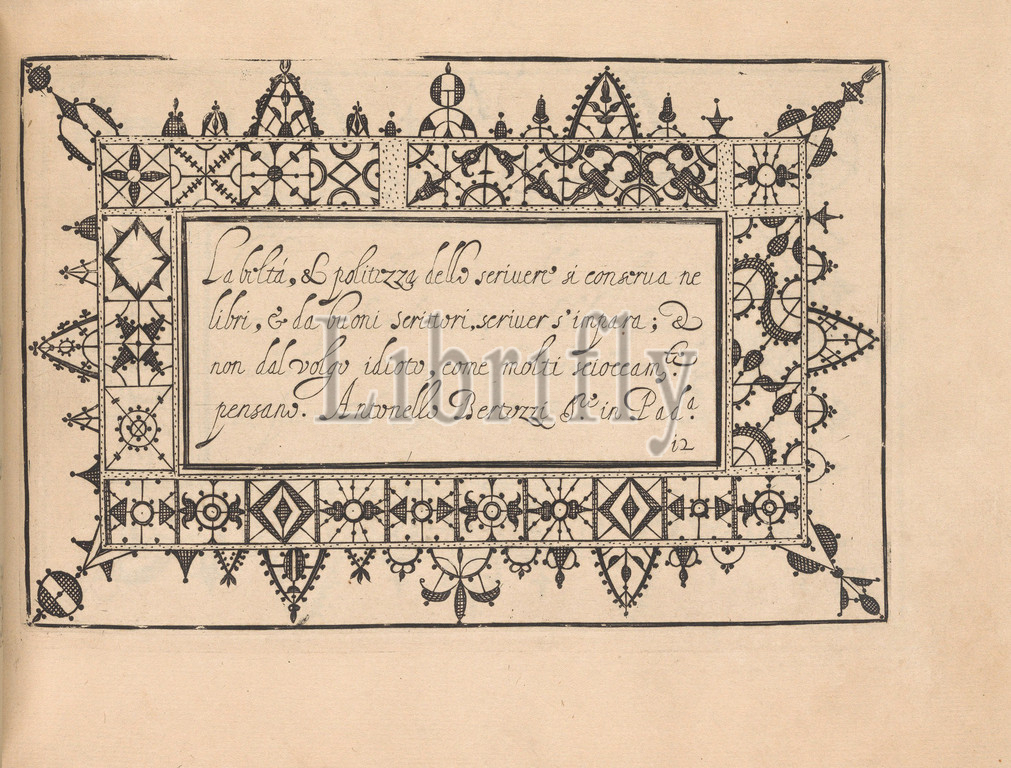 La beltá, & politezza dello scriuere si conserua ne
libri, & da buoni scrittori, scriuer s'impara; &
non dal volgo idioto, come molti scioccam.te
pensano. Antonello Bertozzi S.re in Pad.a
12
Librifly